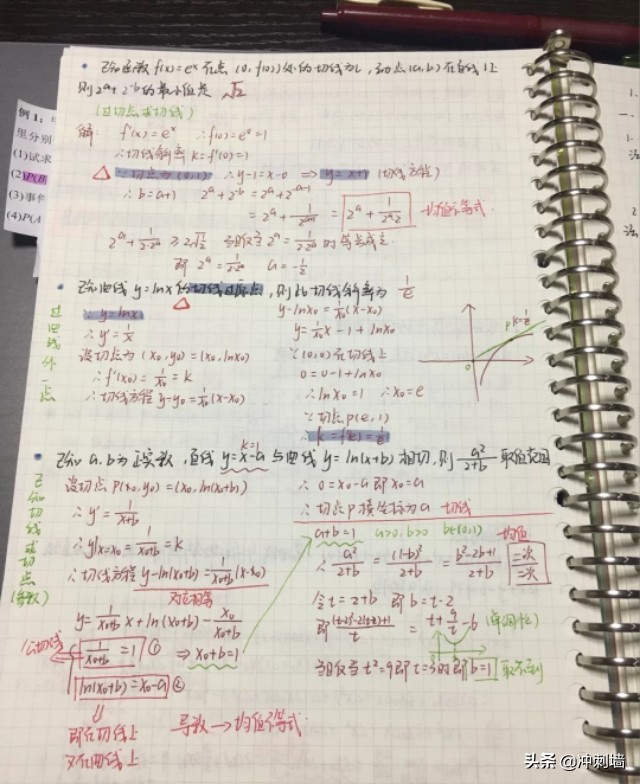 例1:
里分别
(1)试求
(2)P(B
(3)事件
(4)P(A
已知函数 f(x)=eˣ 在点 (0, f(0)) 处的切线为l, 动点(a,b)在直线l上
则 2ᵃ+2⁻ᵇ的最小值是 √2
(过切点求切线)
解: f'(x)=eˣ ∴f'(0)=e⁰=1
∴切线斜率 k=f'(0)=1
△ ∴切点为(0,1) ∴y-1=x-0 ⇒ y=x+1 (切线方程)
∴b=a+1 2ᵃ+2⁻ᵇ=2ᵃ+2⁻ᵃ⁻¹
=2ᵃ+1/2ᵃ⁺¹ = 2ᵃ+1/2ᵃ·2 均值不等式
当且仅当 2ᵃ=1/2·2ᵃ 时等号成立
即 2ᵃ=1/2·2ᵃ a=-1/2
已知曲线 y=lnx的切线过原点, 则此切线斜率为 1/e
△
过曲线外一点
∵y=lnx
∴y'=1/x
设切点为 (x₀,y₀)=(x₀,lnx₀)
∴f'(x₀)=1/x₀=k
∴切线方程 y-y₀=1/x₀(x-x₀)
y-lnx₀=1/x₀(x-x₀)
y=1/x₀x-1+lnx₀
∵(0,0)在切线上
0=0-1+lnx₀
∴lnx₀=1 ∴x₀=e
∴切点P(e,1)
∴k=f'(e)=1/e
P k=1/e
0
已知 a,b为正实数, 直线 y=x-a 与曲线 y=ln(x+b) 相切, 则 a²/2+b 取值范围
k=1
已知切线求切点
(参数)
设切点 P(x₀,y₀)=(x₀,ln(x₀+b))
∴y'=1/x+b
∴y'|x=x₀=1/x₀+b=k
∴切线方程 y-ln(x₀+b)=1/x₀+b(x-x₀)
对应相等
y=1/x₀+b x+ln(x₀+b)-x₀/x₀+b
公切线
1/x₀+b=1 ① ⇒ x₀+b=1
ln(x₀+b)=x₀-a ②
⇓
即在切线上
又在曲线上
导数→均值不等式
∴0=x₀-a 即x₀=a
∴切点P横坐标为a 切线
a+b=1 a>0,b>0 b∈(0,1) 均值
∴a²/2+b=(1-b)²/2+b=b²-2b+1/2+b 二次/一次
令t=2+b 即b=t-2
=t+9/t-6 (单调性)
当且仅当 t²=9即t=3时 即b=1 取不到
头条 @冲刺墙